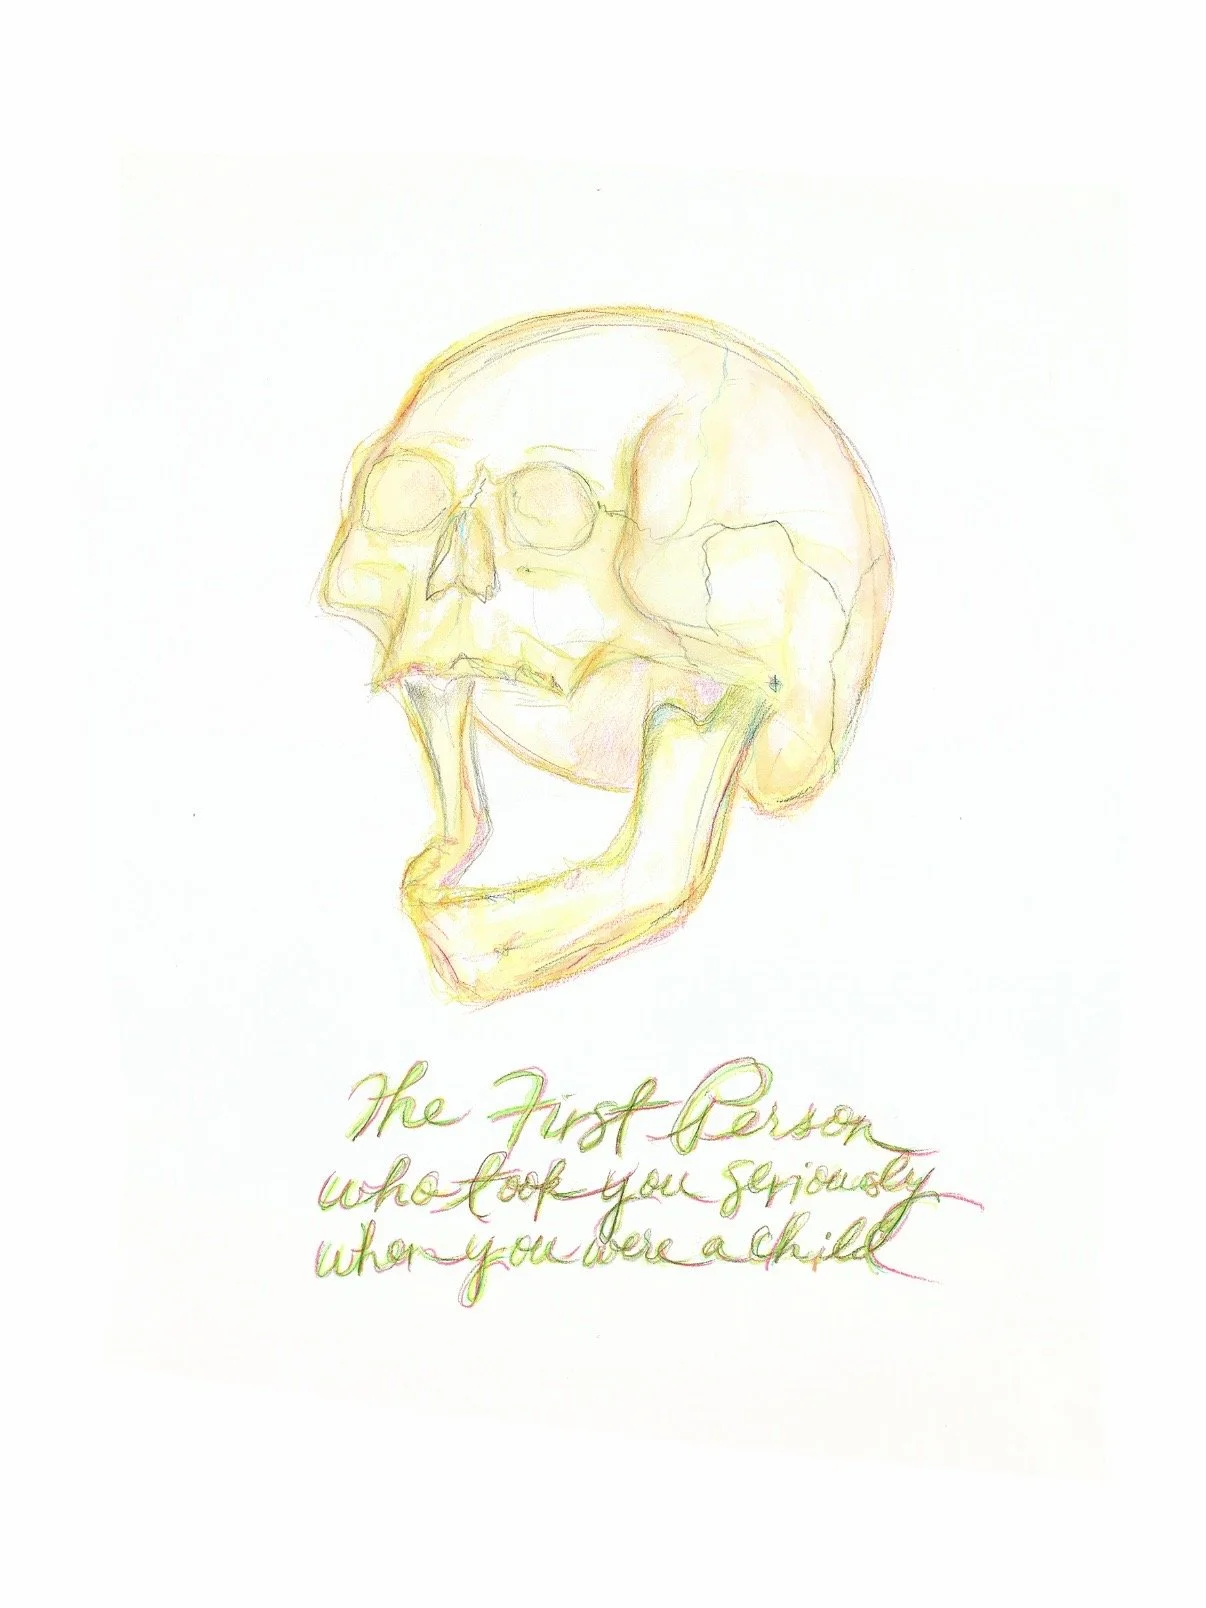 The First Person
who took you seriously
when you were a child